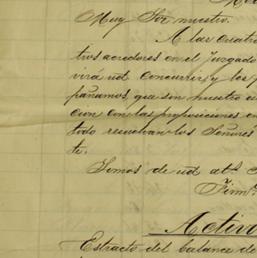 Muy Sor nuestro.
A las cuatro
tros acredores en el Juzgado
virá ud Concurrir, y los p
pañamos, que son nuestro
cion con las proposiciones en
todo resuelvan los Señores
te.
Somos de ud atos S
Firm
Activo
Extracto del balance de